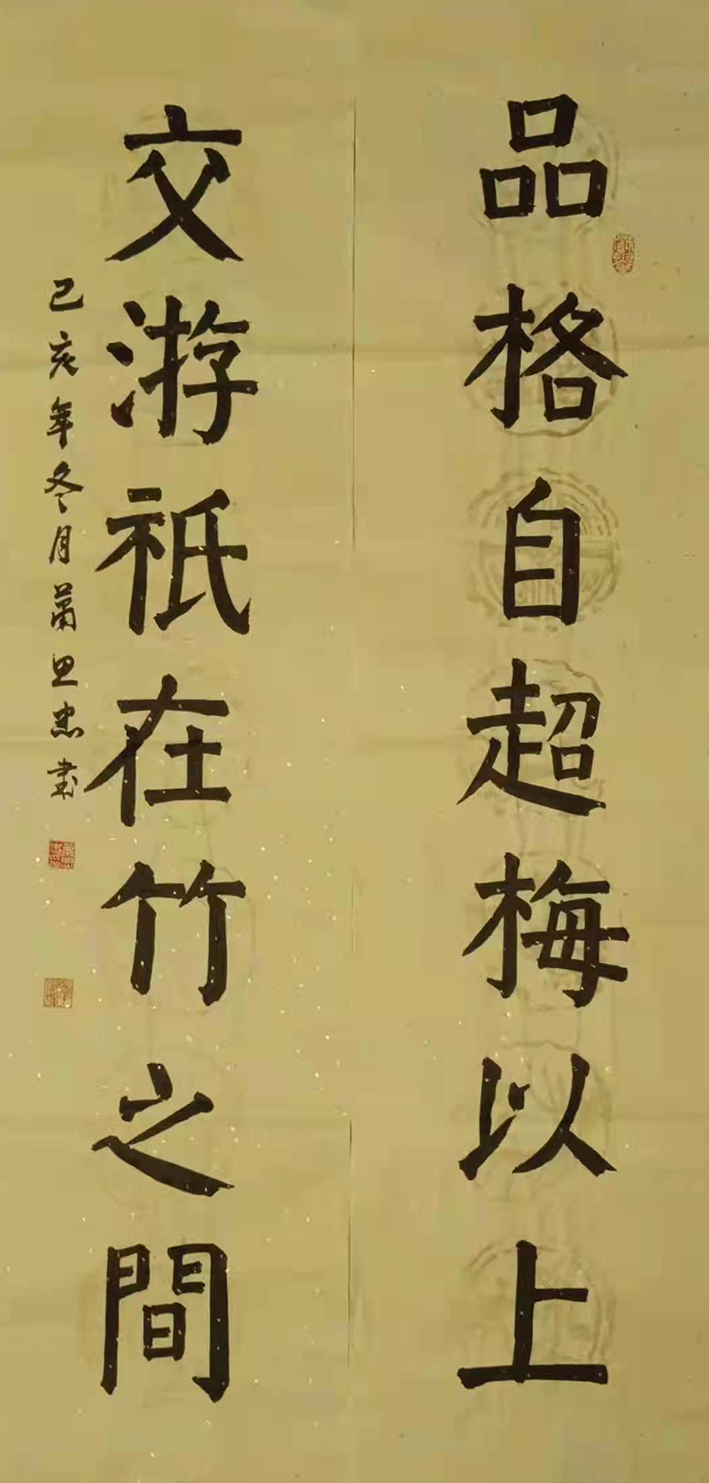 品格自超梅以上
交游祇在竹之間
己亥年冬月萧思忠书